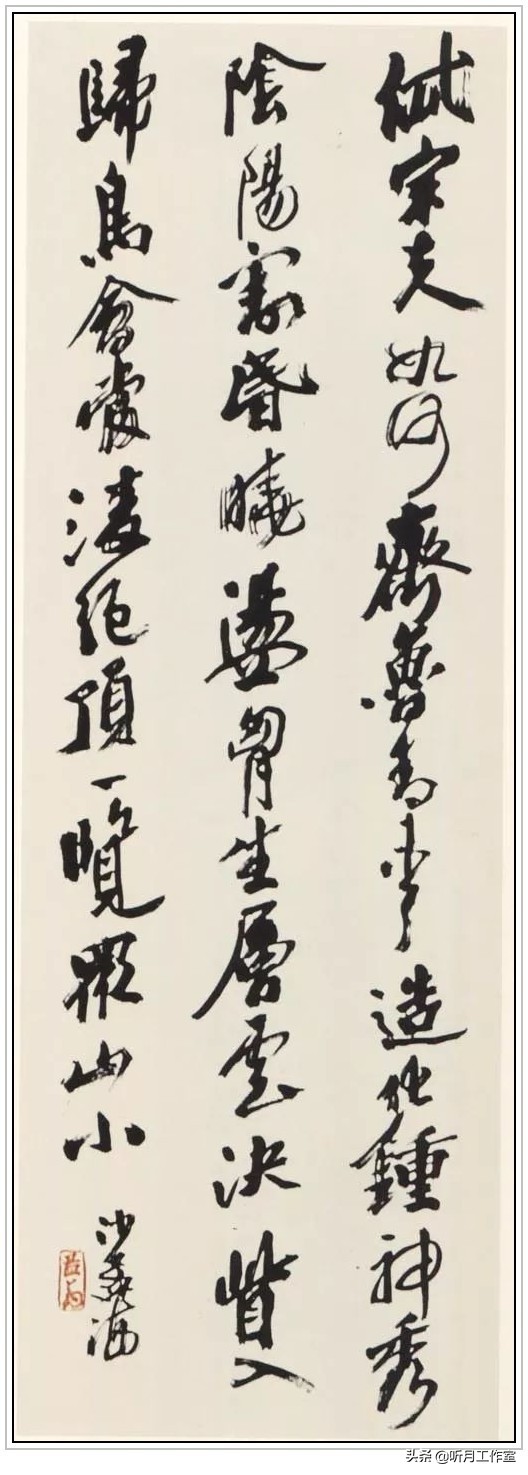 岱宗夫如何齊魯青未了造化鍾神秀
陰陽割昏曉盪胷生層雲決眥入
歸鳥會當淩絕頂一覽眾山小
沙孟海
头条 @听月工作室